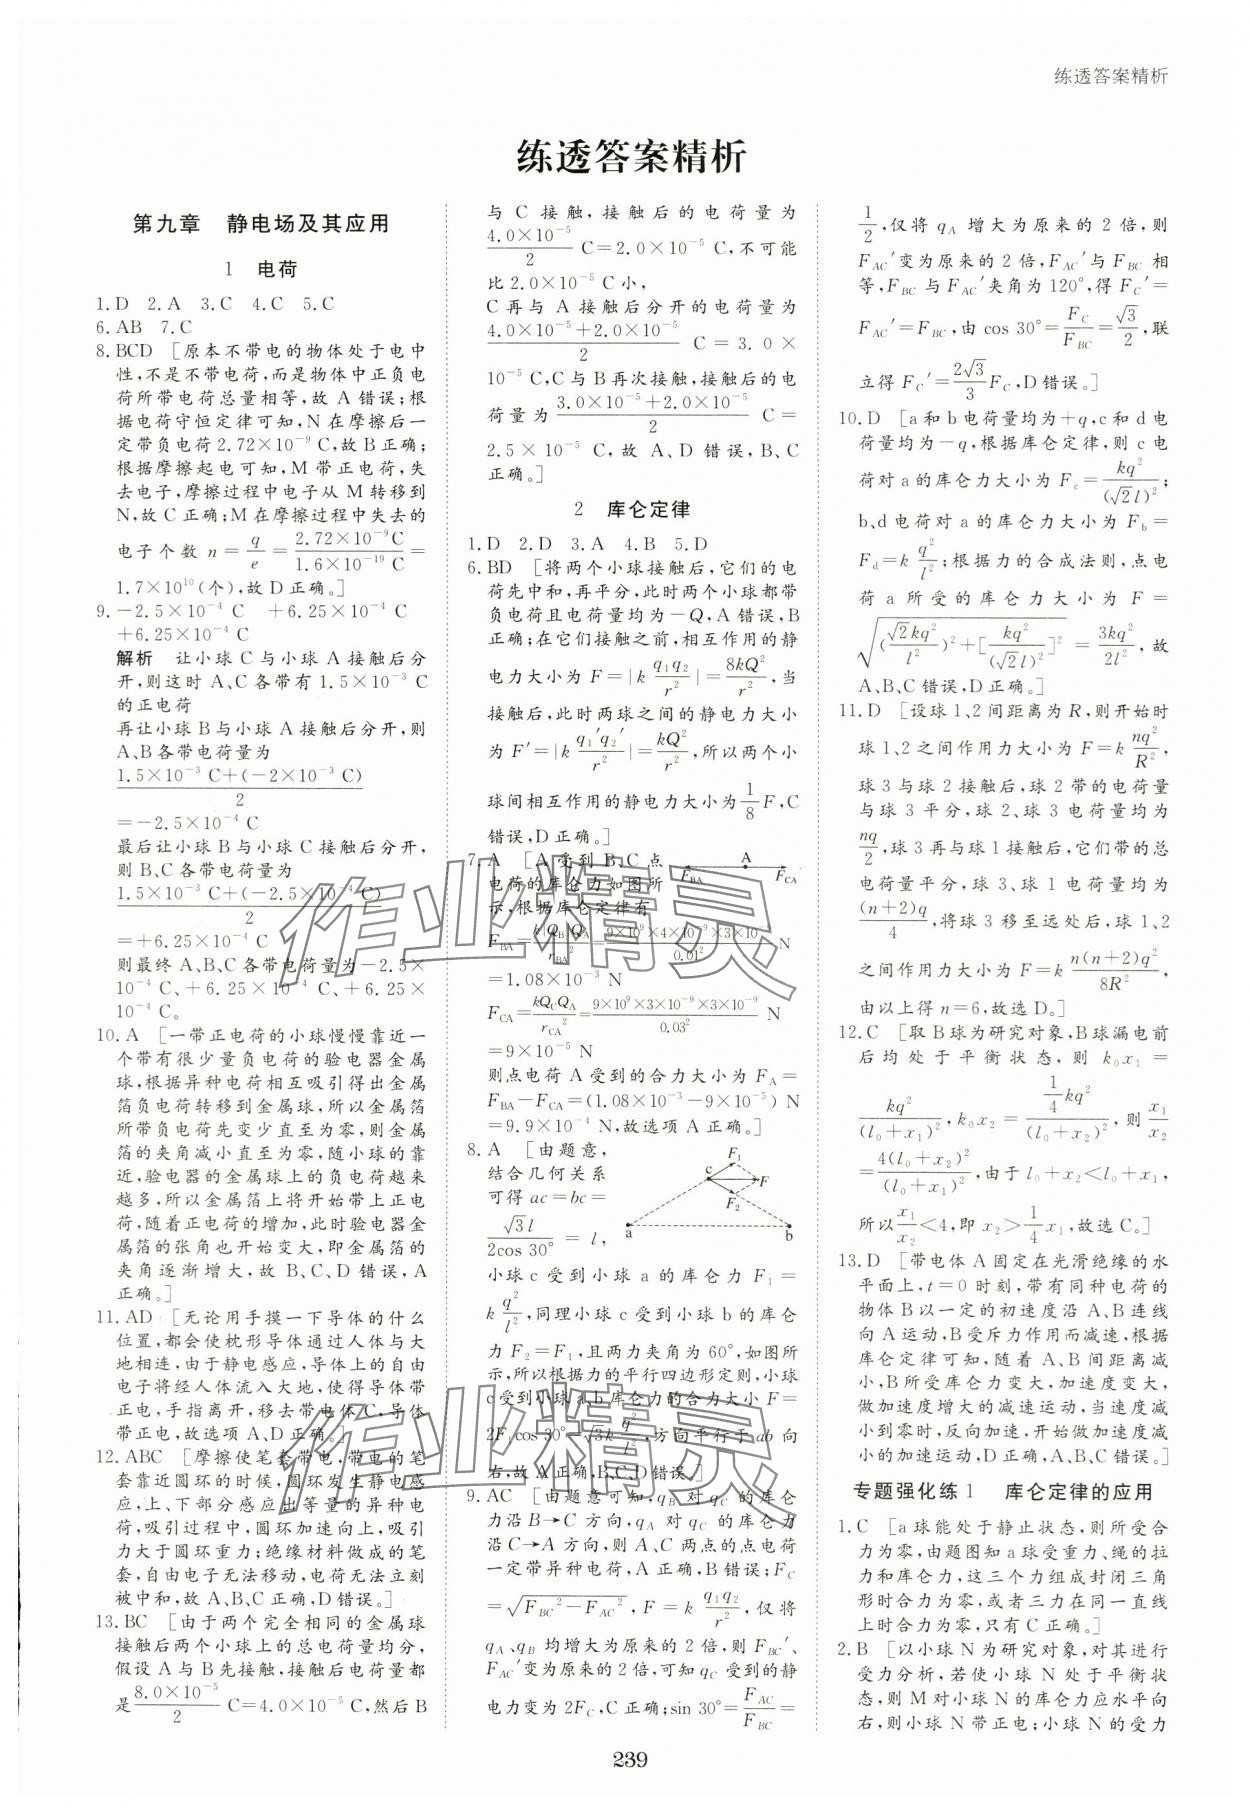 练透答案精析
练透答案精析
第九章 静电场及其应用
1 电荷
1.D 2.A 3.C 4.C 5.C
6.AB 7.C
8.BCD [原本不带电的物体处于电中
性,不是不带电荷,而是物体中正负电
荷所带电荷总量相等,故 A 错误;根
据电荷守恒定律可知,N 在摩擦后一
定带负电荷 2.72×10⁻⁹ C,故 B 正确;
根据摩擦起电可知,M 带正电荷,失
去电子,摩擦过程中电子从 M 转移到
N,故 C 正确;M 在摩擦过程中失去的
电子个数 n = q/e = 2.72×10⁻⁹C/1.6×10⁻¹⁹ C =
1.7×10¹⁰(个),故 D 正确。]
9.-2.5×10⁻⁴ C +6.25×10⁻⁴ C
+6.25×10⁻⁴ C
解析 让小球 C 与小球 A 接触后分
开,则这时 A、C 各带有 1.5×10⁻³ C
的正电荷
再让小球 B 与小球 A 接触后分开,则
A、B 各带电荷量为
1.5×10⁻³ C+(-2×10⁻³ C)/2
=-2.5×10⁻⁴ C
最后让小球 B 与小球 C 接触后分开,
则 B、C 各带电荷量为
1.5×10⁻³ C+(-2.5×10⁻⁴ C)/2
=+6.25×10⁻⁴ C
则最终 A、B、C 各带电荷量为-2.5×
10⁻⁴ C、+6.25×10⁻⁴ C、+6.25×
10⁻⁴ C。
10.A [一带正电荷的小球慢慢靠近一
个带有很少量负电荷的验电器金属
球,根据异种电荷相互吸引得出金属
箔负电荷转移到金属球,所以金属箔
所带负电荷先变少直至为零,则金属
箔的夹角减小直至为零,随小球的靠
近,验电器的金属球上的负电荷越来
越多,所以金属箔上将开始带上正电
荷,随着正电荷的增加,此时验电器金
属箔的张角也开始变大,即金属箔的
夹角逐渐增大,故 B、C、D 错误,A
正确。]
11.AD [无论用手摸一下导体的什么
位置,都会使枕形导体通过人体与大
地相连,由于静电感应,导体上的自由
电子将经人体流入大地,使得导体带
正电,手指离开,移去带电体 C,导体
带正电,故选项 A、D 正确。]
12.ABC [摩擦使笔套带电,带电的笔
套靠近圆环的时候,圆环发生静电感
应,上、下部分感应出等量的异种电
荷,吸引过程中,圆环加速向上,吸引
力大于圆环重力;绝缘材料做成的笔
套,自由电子无法移动,电荷无法立刻
被中和,故 A、B、C 正确,D 错误。]
13.BC [由于两个完全相同的金属球
接触后两个小球上的总电荷量均分,
假设 A 与 B 先接触,接触后电荷量都
是 8.0×10⁻⁵/2 C=4.0×10⁻⁵ C,然后 B
与 C 接触,接触后的电荷量为
4.0×10⁻⁵/2 C=2.0×10⁻⁵ C,不可能
比 2.0×10⁻⁵ C 小,
C 再与 A 接触后分开的电荷量为
4.0×10⁻⁵+2.0×10⁻⁵/2 C = 3.0 ×
10⁻⁵ C,C 与 B 再次接触,接触后的电
荷量为 3.0×10⁻⁵+2.0×10⁻⁵/2 C =
2.5×10⁻⁵ C,故 A、D 错误,B、C
正确。]
2 库仑定律
1.D 2.D 3.A 4.B 5.D
6.BD [将两个小球接触后,它们的电
荷先中和,再平分,此时两个小球都带
负电荷且电荷量均为-Q,A 错误,B
正确;在它们接触之前,相互作用的静
电力大小为 F=|k q₁q₂/r²|=8kQ²/r²,当
接触后,此时两球之间的静电力大小
为 F′=|k q₁′q₂′/r²|=kQ²/r²,所以两个小
球间相互作用的静电力大小为1/8 F,C
错误,D 正确。]
7.A [A 受到 B、C 点
电荷的库仑力如图所
示,根据库仑定律有
F_BA A F_CA
F_BA=kQ_BQ_A/r_BA²=9×10⁹×4×10⁻⁹×3×10⁻⁹/0.01² N
=1.08×10⁻³ N
F_CA=kQ_CQ_A/r_CA²=9×10⁹×3×10⁻⁹×3×10⁻⁹/0.03² N
=9×10⁻⁵ N
则点电荷 A 受到的合力大小为 F_A=
F_BA-F_CA=(1.08×10⁻³-9×10⁻⁵) N
=9.9×10⁻⁴ N,故选项 A 正确。]
8.A [由题意,
结合几何关系
可得 ac=bc=
√3l/2cos 30° = l,
F₁ c F F₂ a b
小球 c 受到小球 a 的库仑力 F₁=
k q²/l²,同理小球 c 受到小球 b 的库仑
力 F₂=F₁,且两力夹角为 60°,如图所
示,所以根据力的平行四边形定则,小球
c 受到小球 a、b 库仑力的合力大小 F=
2F₁cos 30°=√3k q²/l²,方向平行于 ab 向
右,故 A 正确,B、C、D 错误。]
9.AC [由题意可知,q_B 对 q_C 的库仑
力沿 B→C 方向,q_A 对 q_C 的库仑力
沿 C→A 方向,则 A、C 两点的点电荷
一定带异种电荷,A 正确,B 错误;F_C
=√F_BC²-F_AC²,F=k q₁q₂/r²,仅将
q_A、q_B 均增大为原来的 2 倍,则 F_BC′、
F_AC′变为原来的 2 倍,可知 q_C 受到的静
电力变为 2F_C,C 正确;sin 30°=F_AC/F_BC=
1/2,仅将 q_A 增大为原来的 2 倍,则
F_AC′变为原来的 2 倍,F_AC′与 F_BC 相
等,F_BC 与 F_AC′夹角为 120°,得 F_C′=
F_AC′=F_BC,由 cos 30°=F_C/F_BC=√3/2,联
立得 F_C′=2√3/3 F_C,D 错误。]
10.D [a 和 b 电荷量均为+q,c 和 d 电
荷量均为-q,根据库仑定律,则 c 电
荷对 a 的库仑力大小为 F_c=kq²/(√2l)²;
b、d 电荷对 a 的库仑力大小为 F_b=
F_d=k q²/l²;根据力的合成法则,点电
荷 a 所受的库仑力大小为 F=
√(√2kq²/l²)²+[kq²/(√2l)²]² = 3kq²/2l²,故
A、B、C 错误,D 正确。]
11.D [设球 1、2 间距离为 R,则开始时
球 1、2 之间作用力大小为 F=k nq²/R²,
球 3 与球 2 接触后,球 2 带的电荷量
与球 3 平分,球 2、球 3 电荷量均为
nq/2,球 3 再与球 1 接触,它们带的总
电荷量平分,球 3、球 1 电荷量均为
(n+2)q/4,将球 3 移至远处后,球 1、2
之间作用力大小为 F=k n(n+2)q²/8R²,
由以上得 n=6,故选 D。]
12.C [取 B 球为研究对象,B 球漏电前
后均处于平衡状态,则 k₀x₁=
kq²/(l₀+x₁)²,k₀x₂=1/4kq²/(l₀+x₂)²,则 x₁/x₂
=4(l₀+x₂)²/(l₀+x₁)²,由于 l₀+x₂<l₀+x₁,
所以 x₁/x₂<4,即 x₂>1/4x₁,故选 C。]
13.D [带电体 A 固定在光滑绝缘的水
平面上,t=0 时刻,带有同种电荷的
物体 B 以一定的初速度沿 A、B 连线
向 A 运动,B 受斥力而做减速,根据
库仑定律可知,随着 A、B 间距离减
小,B 所受库仑力变大,加速度变大,
做加速度增大的减速运动,当速度减
小到零时,反向加速,开始做加速度减
小的加速运动,D 正确,A、B、C 错误。]
专题强化练 1 库仑定律的应用
1.C [a 球能处于静止状态,则所受合
力为零,由题图知 a 球受重力、绳的拉
力和库仑力,这三个力组成封闭三角
形时合力为零,或者三力在同一直线
上时合力为零,只有 C 正确。]
2.B [以小球 N 为研究对象,对其进行
受力分析,若使小球 N 处于平衡状
态,则 M 对小球 N 的库仑力应水平向
右,则小球 N 带正电;小球 N 的受力
239
作业精灵
作业精灵